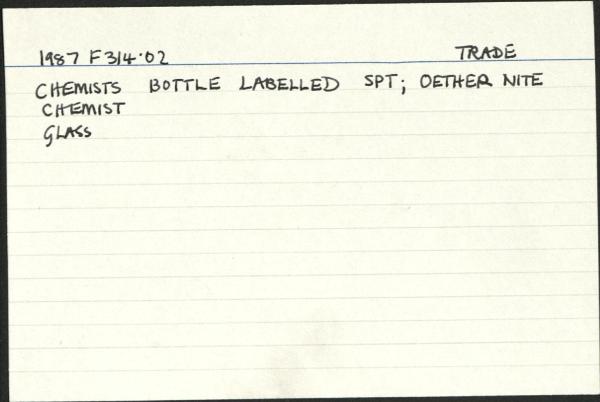 1987 F314.02 TRADE
CHEMISTS BOTTLE LABELLED SPT; OETHER NITE
CHEMIST
GLASS